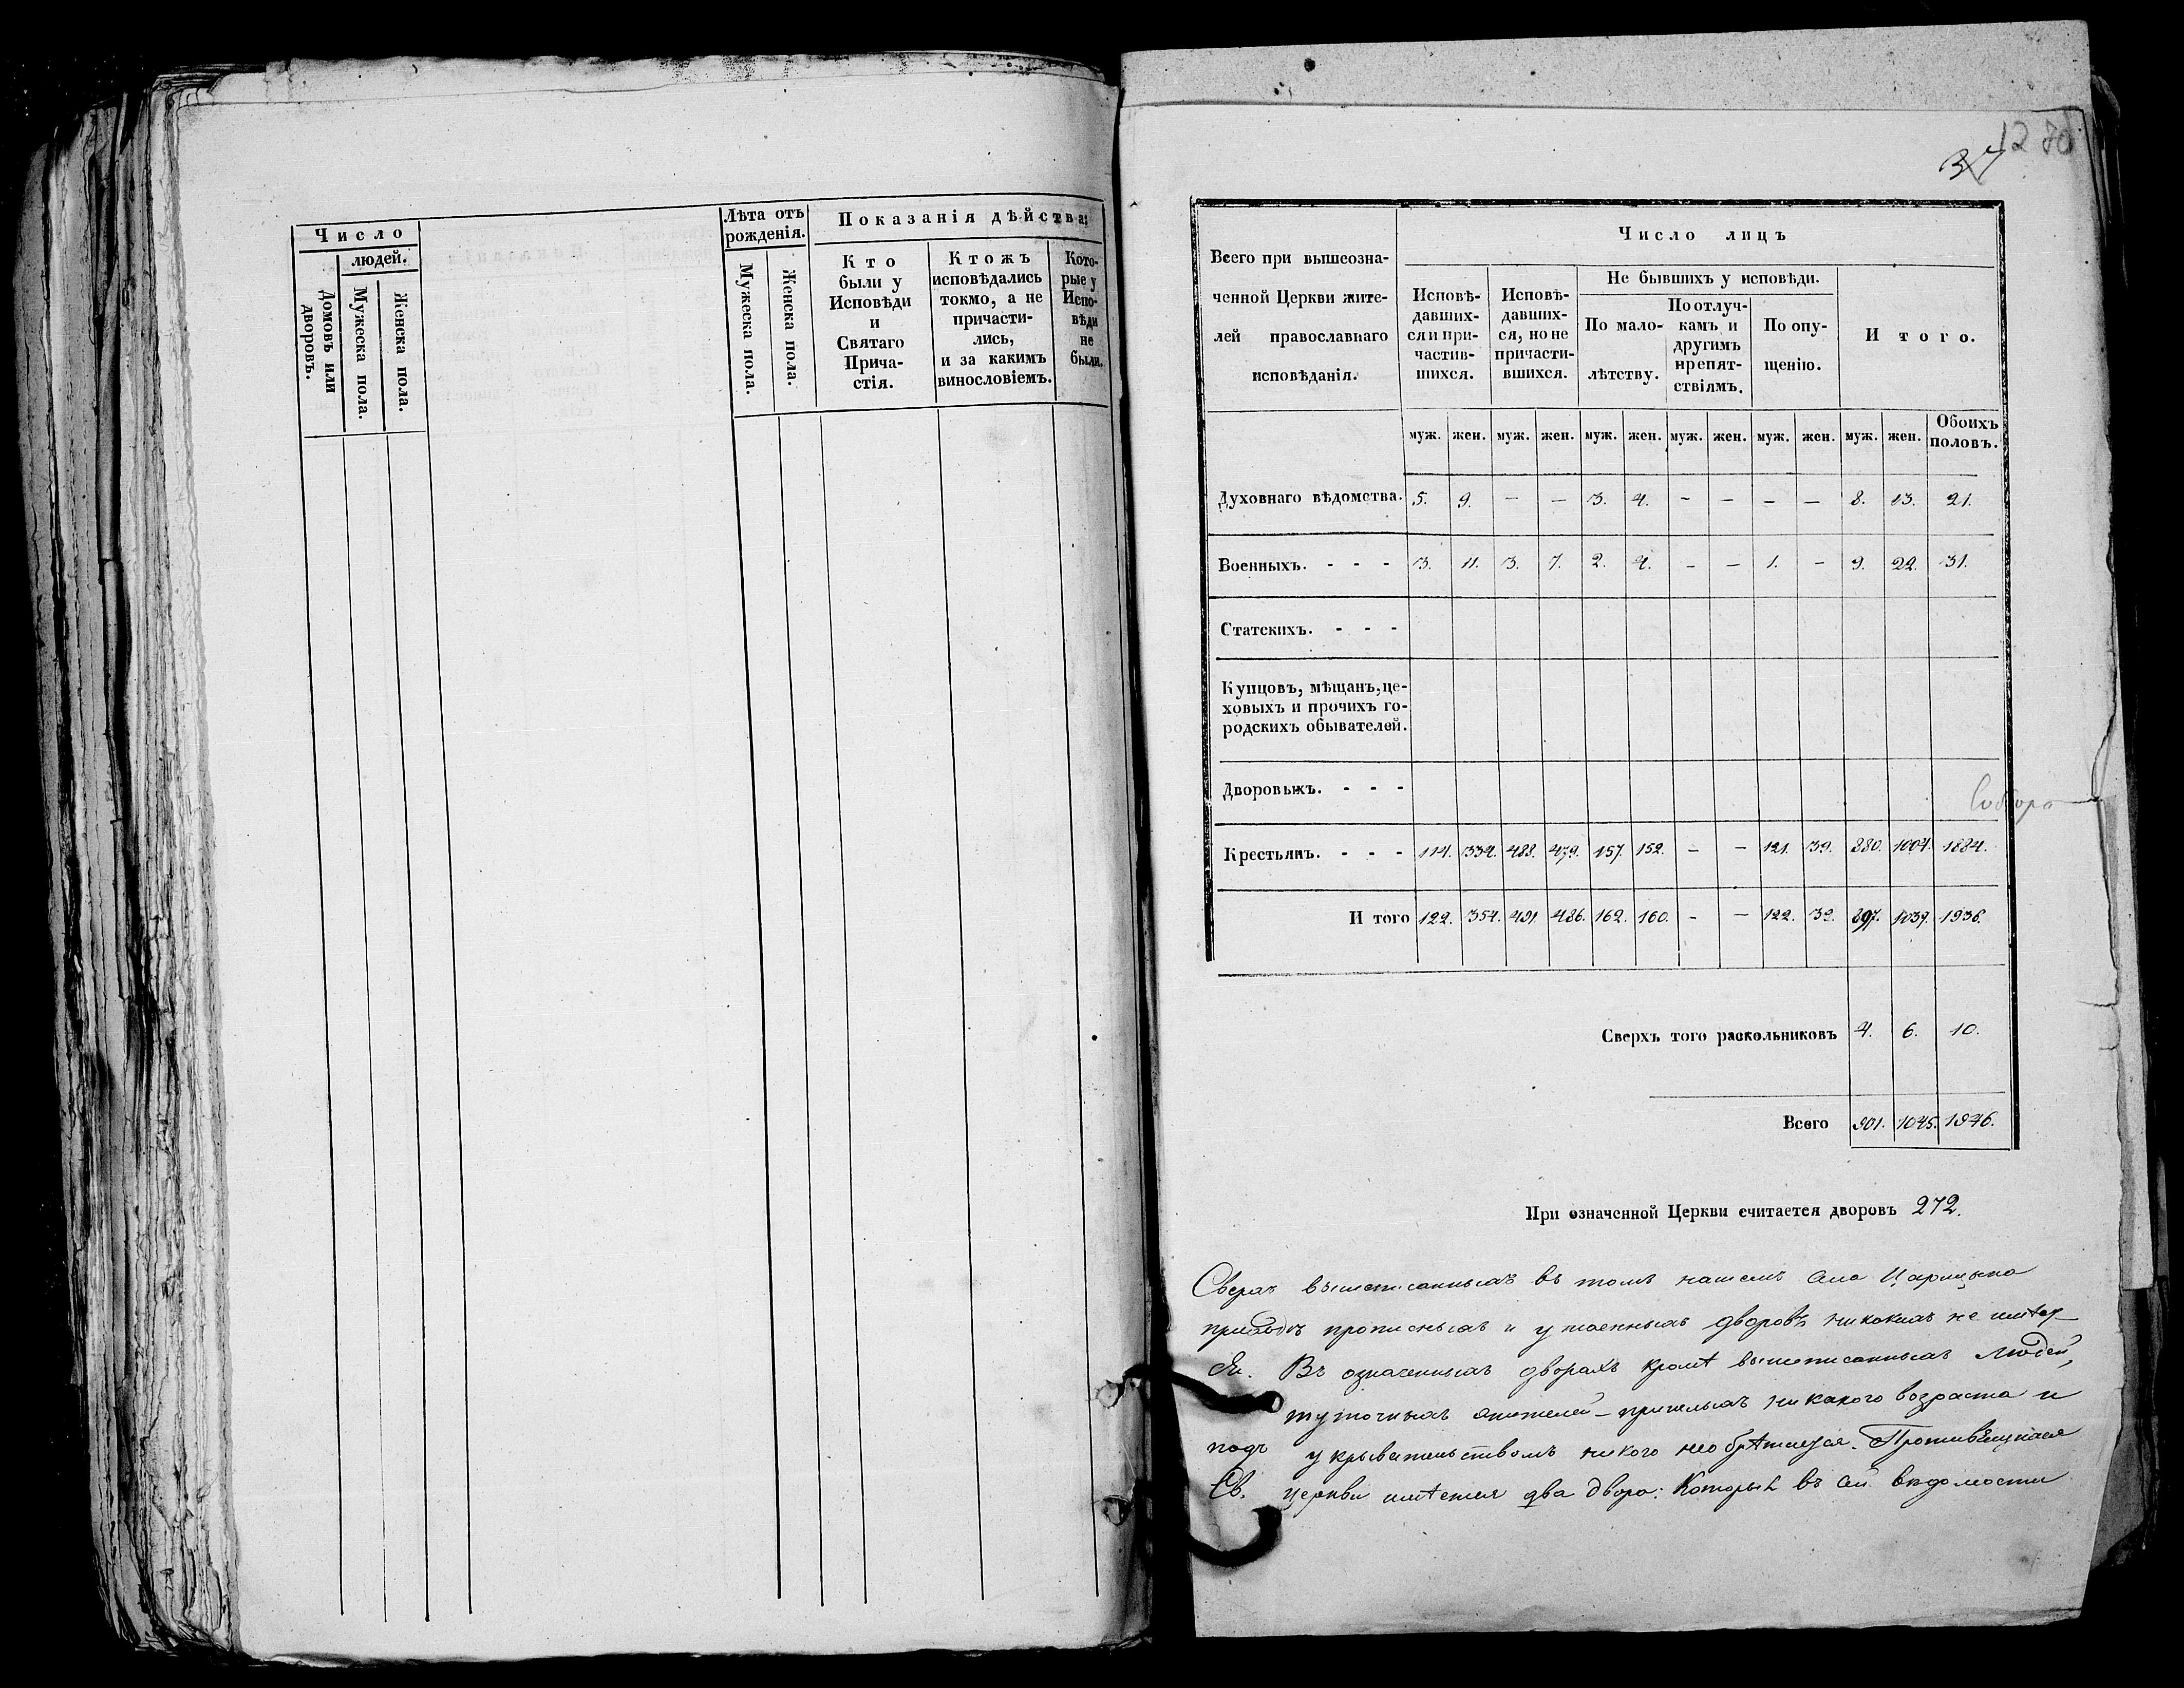 Число
людей.
Домовъ или дворовъ.
Мужеска пола.
Женска пола.
Лѣта отъ рожденія.
Мужеска пола.
Женска пола.
Показанія дѣйства:
Кто
были у
Исповѣди
и
Святаго
Прича-
стія.
Ктожъ
исповѣдались
токмо, а не
причасти-
лись,
и за какимъ
винословіемъ.
Кото-
рые у
Испо-
вѣди
не
были.
37
12 70
Всего при вышеозна-
ченной Церкви жите-
лей православнаго
исповѣданія.
Число лицъ
Исповѣ-
давших-
ся и при-
частив-
шихся.
Исповѣ-
давших-
ся, но не
причасти-
вшихся.
Не бывшихъ у исповѣди.
По мало-
лѣтству.
По отлуч-
камъ и
другимъ
препят-
ствіямъ.
По опу-
щенію.
Итого.
муж. жен. муж. жен. муж. жен. муж. жен. муж. жен. муж. жен. Обоихъ половъ.
Духовнаго вѣдомства. 5. 9. — — 3. 4. — — — — 8. 13. 21.
Военныхъ. - - - 3. 11. 3. 7. 2. 4. — — 1. — 9. 22. 31.
Статскихъ. - - -
Купцовъ, мѣщанъ, це-
ховыхъ и прочихъ го-
родскихъ обывателей.
Дворовыхъ. - - -
Крестьянъ. - - - 114. 334. 488. 479. 157. 152. — — 121. 39. 880. 1004. 1884.
И того 122. 354. 491. 486. 162. 160. — — 122. 39. 897. 1039. 1936.
Сверхъ того раскольниковъ 4. 6. 10.
Всего 901. 1045. 1946.
При означенной Церкви считается дворовъ 272.
Сверхъ вышеписанныхъ въ томъ нашемъ Царицына
приходѣ прописныхъ и утаенныхъ дворовъ никакихъ не имѣет-
ся. Въ означенныхъ дворахъ кромѣ вышеписанныхъ людей,
жителей – пришлыхъ никакого возраста и
подъ укрывательствомъ никого не обрѣтается.
Св. Церкви имѣется два двора: которыя въ сей вѣдомости